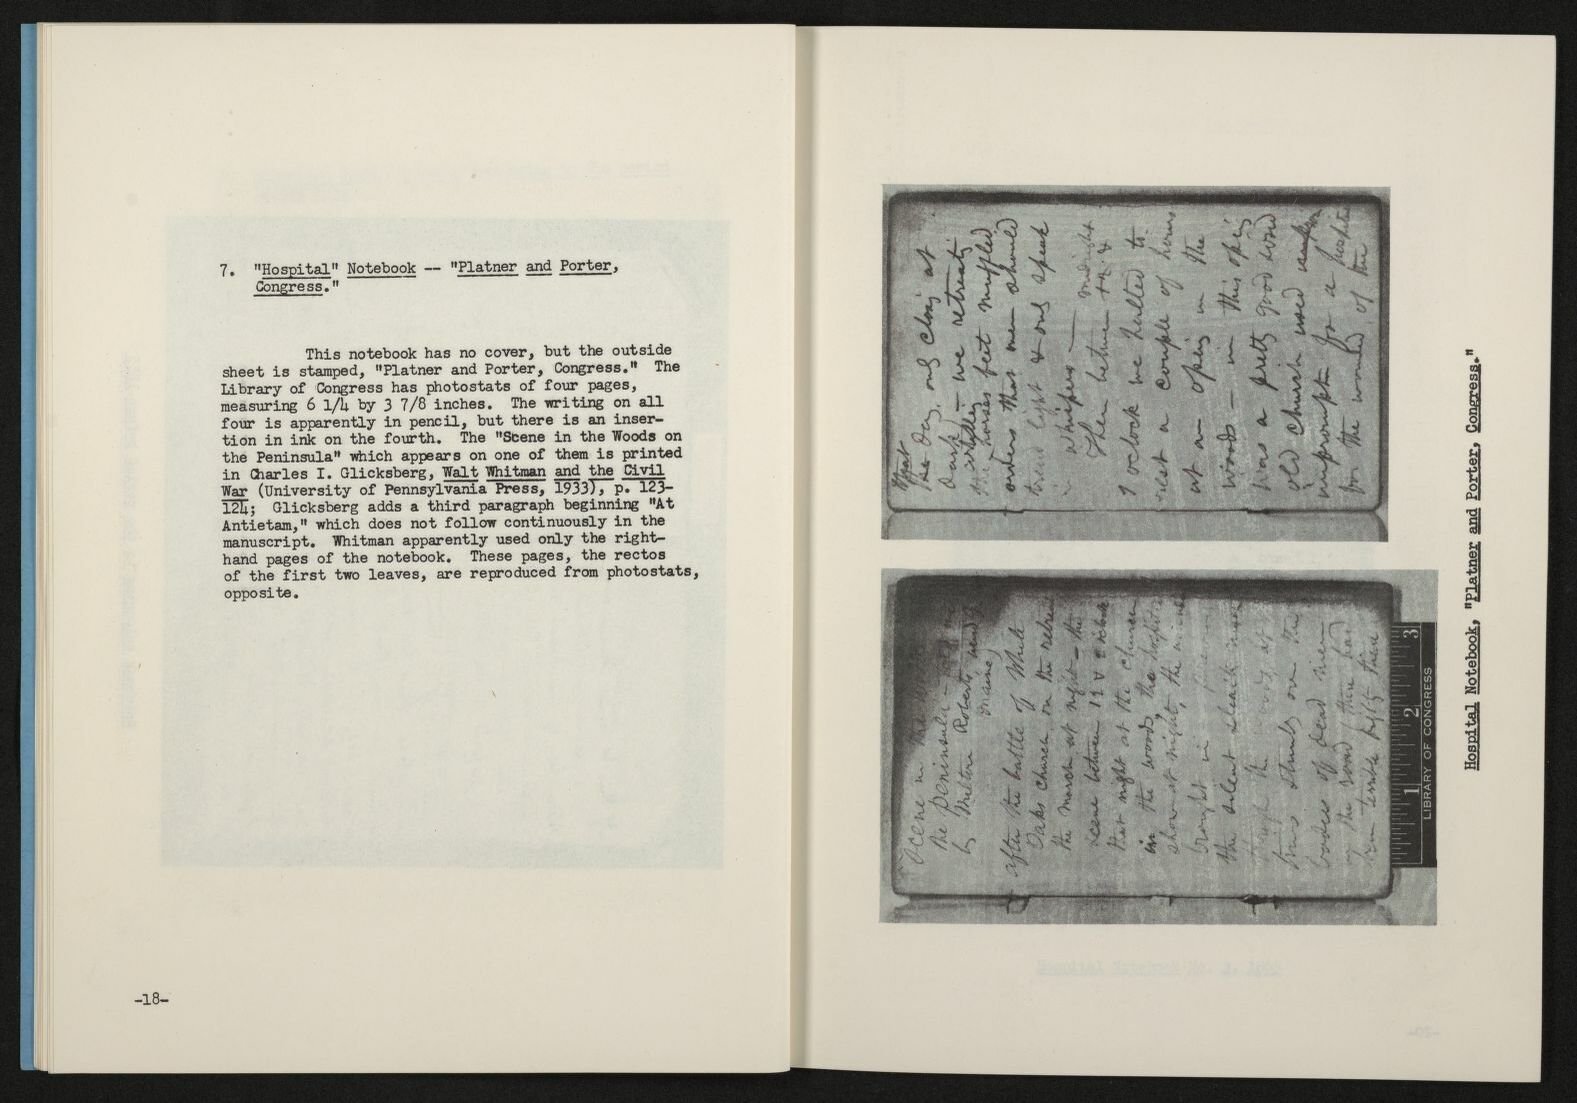 7. "Hospital" Notebook -- "Platner and Porter,
Congress."
This notebook has no cover, but the outside
sheet is stamped, "Platner and Porter, Congress." The
Library of Congress has photostats of four pages,
measuring 6 1/4 by 3 7/8 inches. The writing on all
four is apparently in pencil, but there is an inser-
tion in ink on the fourth. The "Scene in the Woods on
the Peninsula" which appears on one of them is printed
in Charles I. Glicksberg, Walt Whitman and the Civil
War (University of Pennsylvania Press, 1933), p. 123-
124; Glicksberg adds a third paragraph beginning "At
Antietam," which does not follow continuously in the
manuscript. Whitman apparently used only the right-
hand pages of the notebook. These pages, the rectos
of the first two leaves, are reproduced from photostats,
opposite.
-18-
that
day, only closing at
dark, — we retreated
the horses feet muffled
orders that men should
tread light & only speak
in whispers —
midnight
Then between &
1 oclock we halted to
rest a couple of hours
at an opening in the
woods — in this opening
was a pretty good sized
old church used
impromptu for a hospital
for the wounded of the
Scene in the woods
the peninsula — told me
by Milton Roberts ward G
Maine
after the battle of White
Oaks church, on the retreat
the march at night — the
scene between 12 & 2 oclock
that night at the church
in the woods, the hospital
show at night, the wounded
brought in
the silent stealth march
through the woods, at
times stumbling over the
bodies of dead men
the road there had
been terrible there
1 2 3
LIBRARY OF CONGRESS
Hospital Notebook, "Platner and Porter, Congress."